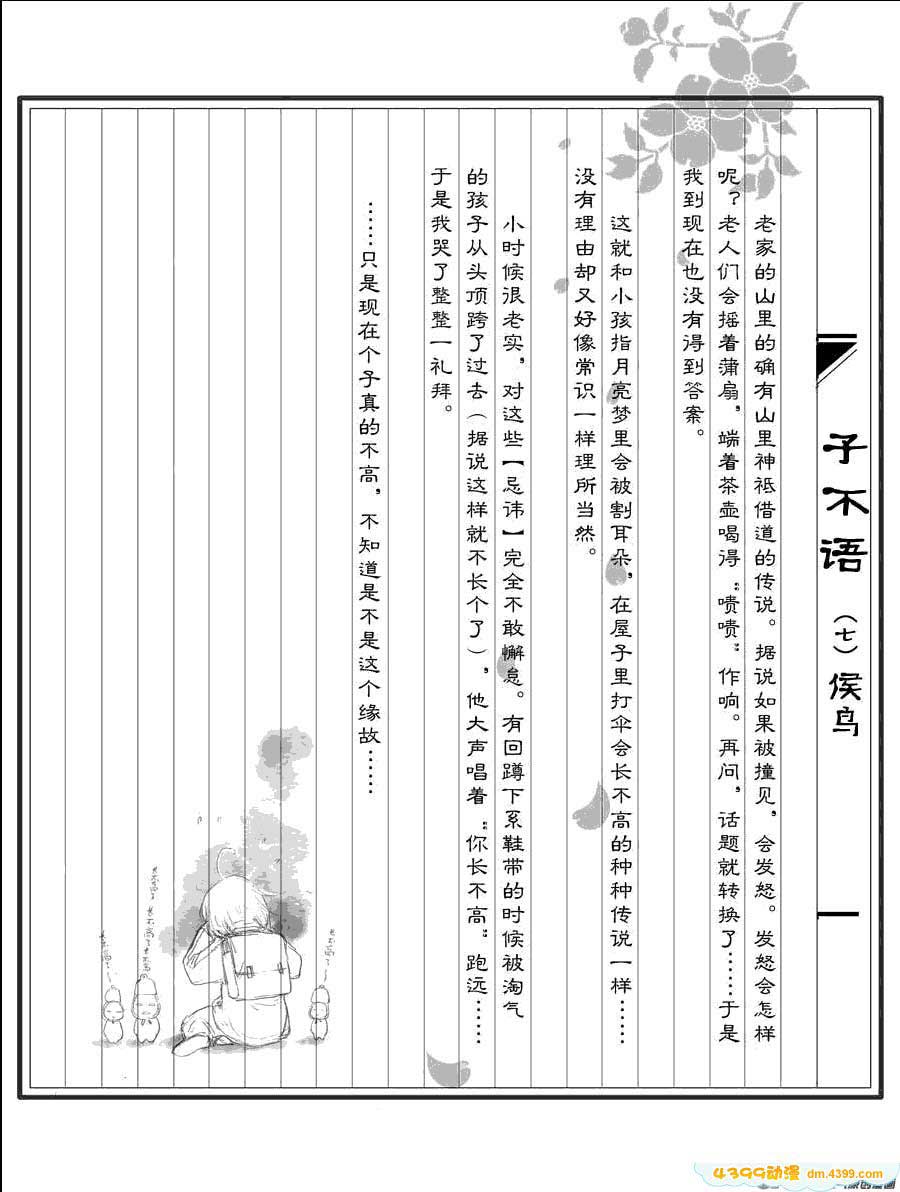 子不语 （七）候鸟
老家的山里的确有山里神祗借道的传说。据说如果被撞见，会发怒。发怒会怎样
呢？老人们会摇着蒲扇，端着茶壶喝得“啧啧”作响。再问，话题就转换了……于是
我到现在也没有得到答案。
这就和小孩指月亮梦里会被割耳朵，在屋子里打伞会长不高的种种传说一样……
没有理由却又好像常识一样理所当然。
小时候很老实，对这些【忌讳】完全不敢懈怠。有回蹲下系鞋带的时候被淘气
的孩子从头顶跨了过去（据说这样就不长个了），他大声唱着“你长不高”跑远……
于是我哭了整整一礼拜。
……只是现在个子真的不高，不知道是不是这个缘故……
长不高了～
长不高了～
长不高了～
长不高了～
4399动漫 dm.4399.com